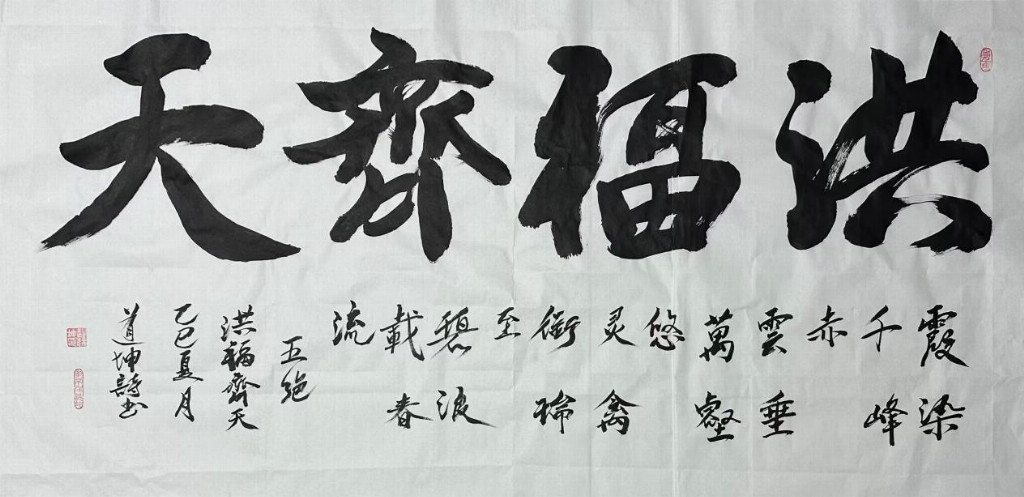 洪福齊天
霞染
千峰
赤
雲垂
萬壑
悠
灵禽
銜瑞
至
碧波
載春
流
五絕
洪福齊天
乙巳夏月
道坤詩书